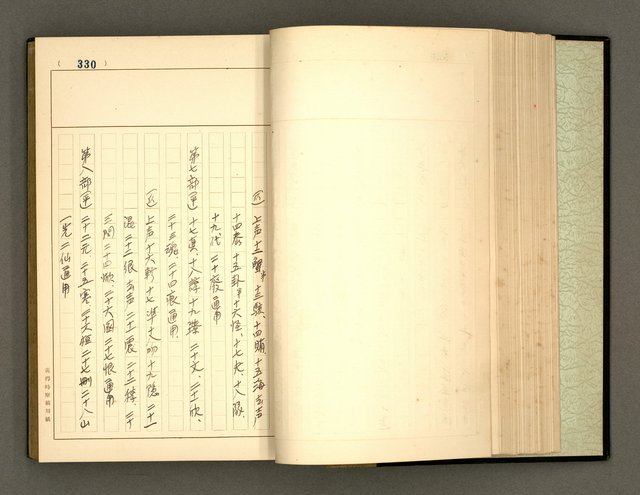 ( 330 )
(仄) 上声十二蟹半十三駭、十四賄、十五海去声
十四泰、十五卦半十六怪、十七夬、十八隊、
十九代 二十廢通用
第七部(平) 十七真、十八諄十九臻 二十文、二十一欣、
二十三魂、二十四痕通用
(仄) 上声十六軫十七準十八吻十九隱 二十一
混 二十二很 去声 二十一震 二十二稕、二十
三問 二十四焮、二十六慁 二十七恨通用
第八部(平) 二十二元、二十五寒 二十六桓 二十七刪 二十八山
一先 二仙通用